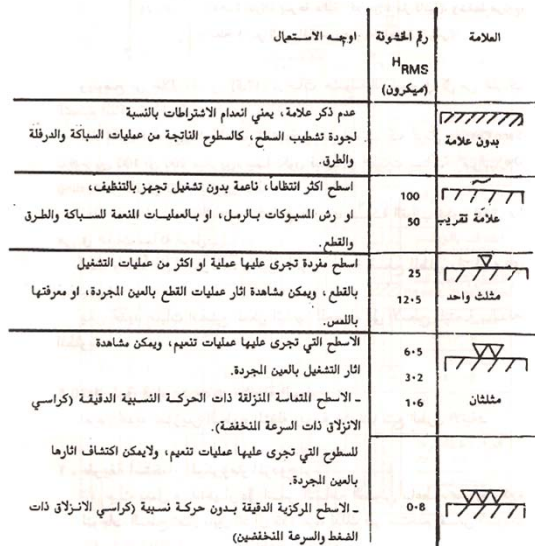 العلامة
رقم الخشونة
H RMS
(ميكرون)
اوجه الاستعمال
بدون علامة
عدم ذكر علامة، يعني انعدام الاشتراطات بالنسبة
لجودة تشطيب السطح، كالسطوح الناتجة من عمليات السباكة والدرفلة
والطرق.
~
علامة تقريب
100
50
اسطح اكثر انتظاماً، ناعمة بدون تشغيل تجهز بالتنظيف،
او رش المسبوكات بالرمل، او بالعمليات المنعمة للسباكة والطرق
والقطع.
مثلث واحد
25
12·5
اسطح مفردة تجرى عليها عملية او اكثر من عمليات التشغيل
بالقطع، ويمكن مشاهدة اثار عمليات القطع بالعين المجردة، او معرفتها
باللمس.
مثلثان
6·5
3·2
1·6
الاسطح التي تجرى عليها عمليات تنعيم، ويمكن مشاهدة
اثار التشغيل بالعين المجردة.
ـ الاسطح المتماسة المنزلقة ذات الحركة النسبية الدقيقة (كراسي
الانزلاق ذات السرعة المنخفضة).
0·8
للسطوح التي تجرى عليها عمليات تنعيم، ولايمكن اكتشاف اثارها
بالعين المجردة.
ـ الاسطح المركزية الدقيقة بدون حركة نسبية (كراسي الانزلاق ذات
الضغط والسرعة المنخفضين)